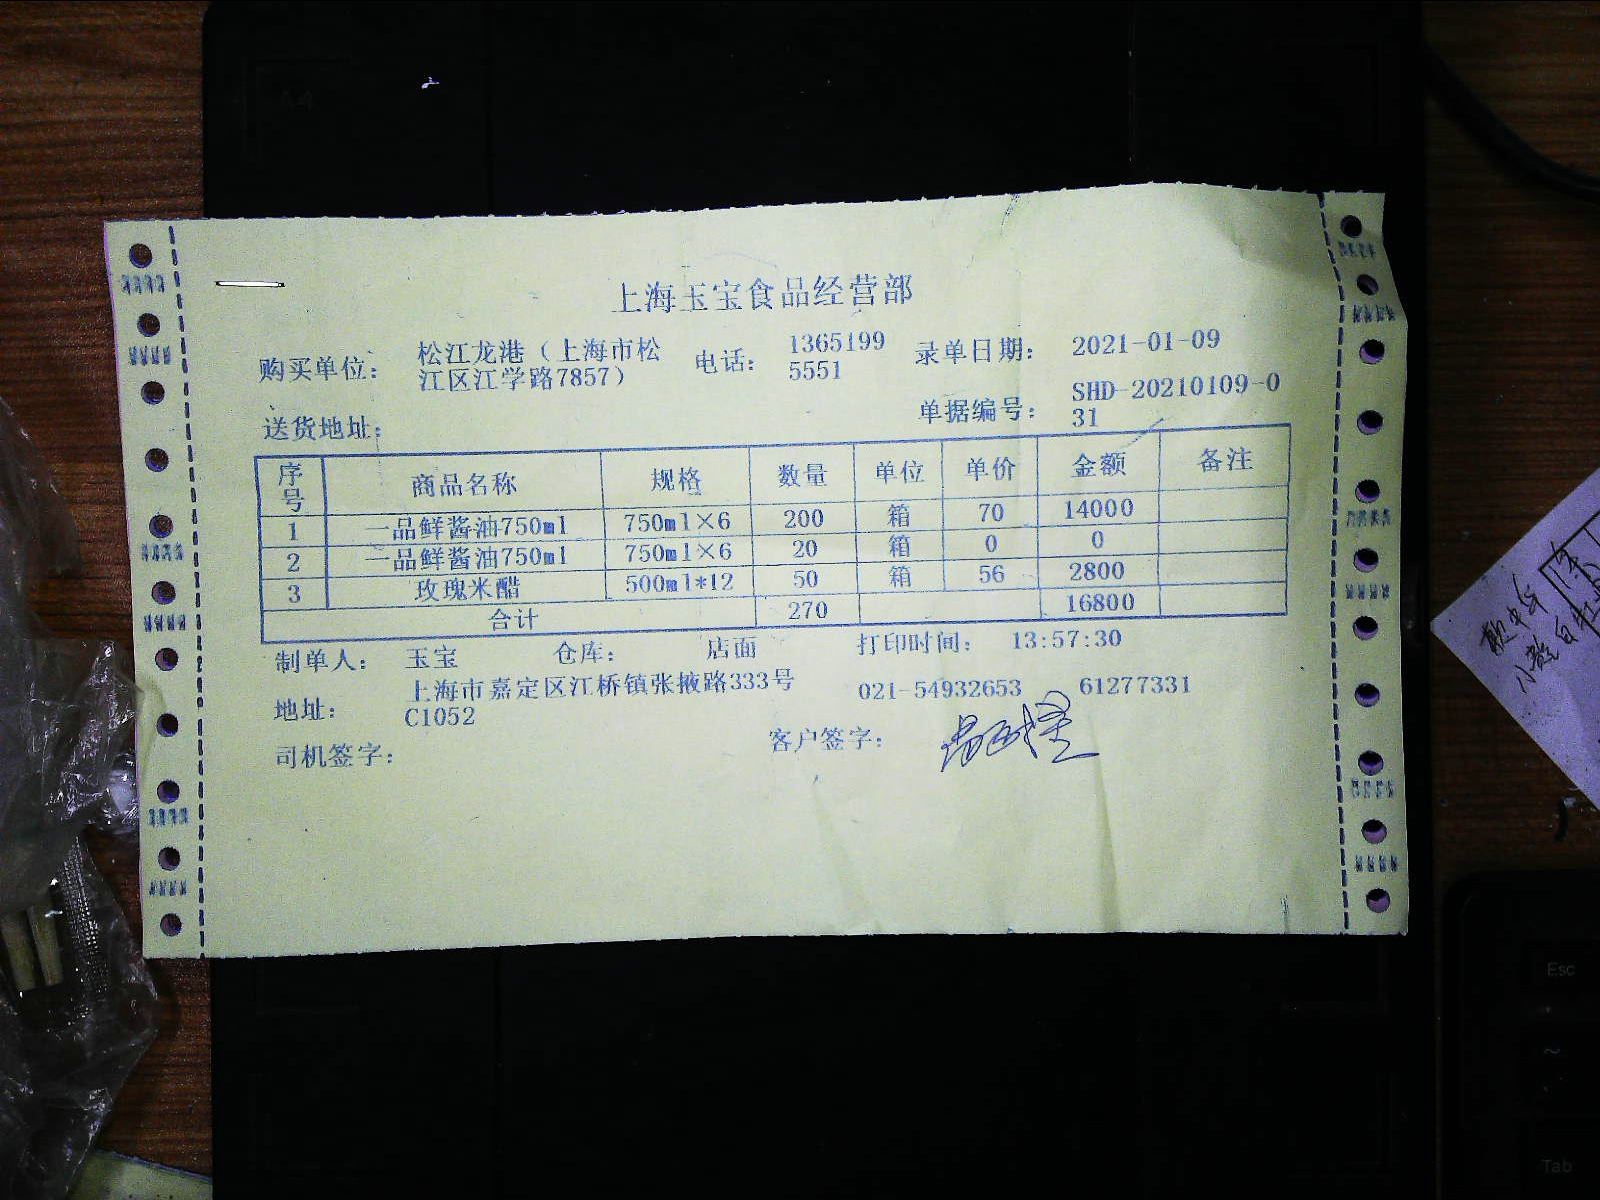 上海玉宝食品经营部
购买单位: 松江龙港（上海市松 电话: 1365199 录单日期: 2021-01-09
江区江学路7857） 5551
送货地址: 单据编号: SHD-20210109-0
31
序号 商品名称 规格 数量 单位 单价 金额 备注
1 一品鲜酱油750ml 750ml×6 200 箱 70 14000
2 一品鲜酱油750ml 750ml×6 20 箱 0 0
3 玫瑰米醋 500ml*12 50 箱 56 2800
合计 270 16800
制单人: 玉宝 仓库: 店面 打印时间: 13:57:30
地址: 上海市嘉定区江桥镇张掖路333号 021-54932653 61277331
C1052
司机签字: 客户签字:
Esc
Tab